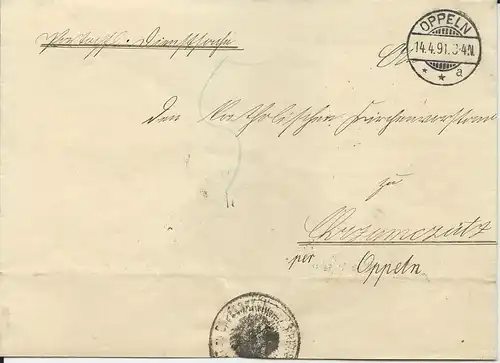 Portopfl. Dienstsache
OPPELN
14.4.91. 3-4N.
* * a
An
den Katholischen Kirchenvorstand
zu
Chrzumczütz
per Oppeln